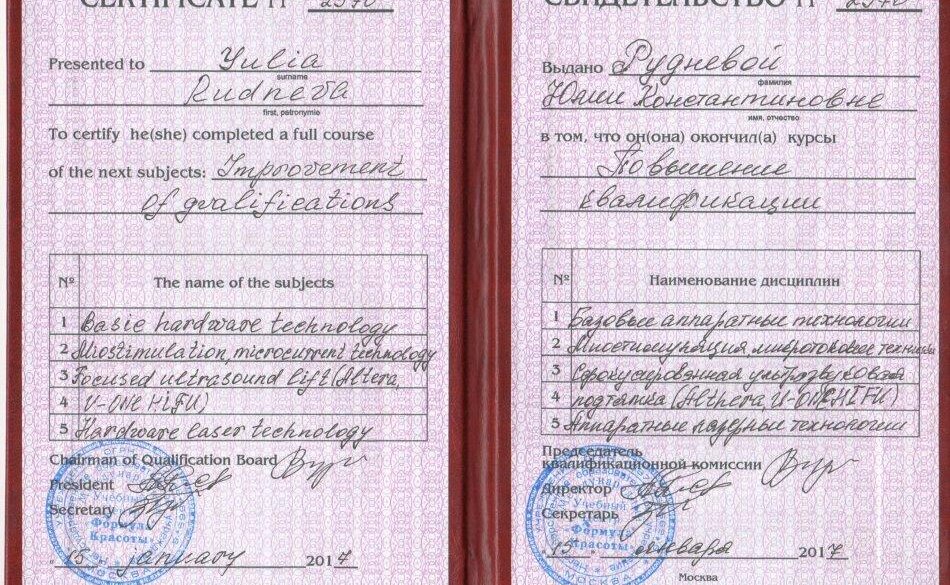 CERTIFICATE №
Presented to Yulia
surname
Rudneva
first, patronymic
To certify he(she) completed a full course
of the next subjects: Improvement
of qvalifications
№ The name of the subjects
1 Basic hardware technology
2 Miostimulation, microcurrent technology
3 Focused ultrasound lift (Altera,
4 U-ONE HiFU)
5 Hardware laser technology
Chairman of Qualification Board
President
Secretary
Учебный
Формула
Красоты
МОСКВА
"15" january 2017
СВИДЕТЕЛЬСТВО №
Выдано Рудневой
фамилия
Юлии Константиновне
имя, отчество
в том, что он(она) окончил(а) курсы
Повышение
квалификации
№ Наименование дисциплин
1 Базовые аппаратные технологии
2 Миостимуляция, микротоковые
3 Сфокусированная ультразвуковая
4 подтяжка (Althera, U-ONE HIFU)
5 Аппаратные лазерные технологии
Председатель
квалификационной комиссии
Директор
Секретарь
Учебный
Формула
Красоты
МОСКВА
"15" января 2017
Москва